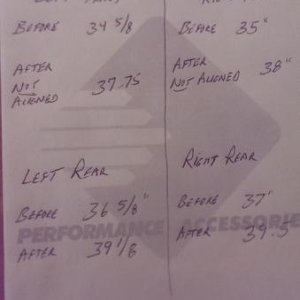 BEFORE 34 5/8
AFTER
NOT
ALIGNED 37.75
BEFORE 35"
AFTER
NOT ALIGNED 38"
LEFT REAR
BEFORE 36 5/8"
AFTER 39 1/8
RIGHT REAR
BEFORE 37"
AFTER 39.5
PERFORMANCE ACCESSORIES